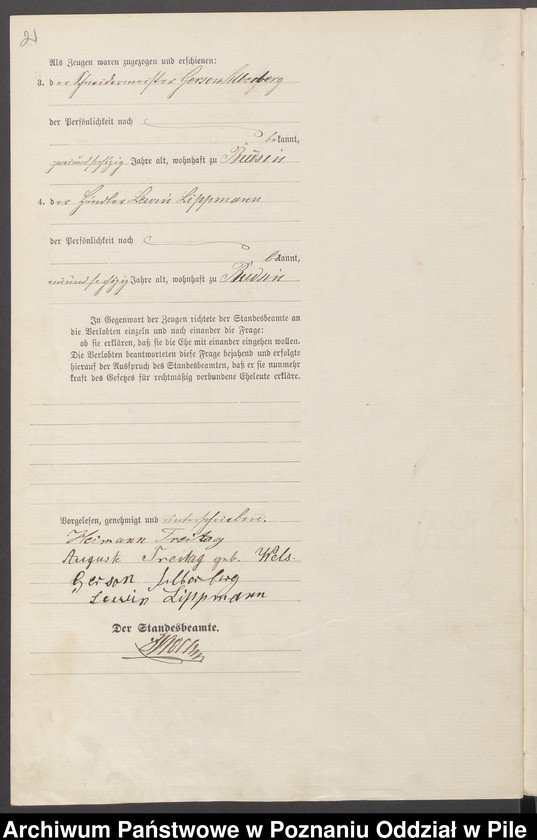 21
Als Zeugen waren zugezogen und erschienen:
3. der Schneidermeister Gerson Silberberg
der Persönlichkeit nach
bekannt,
zweiundsechzig Jahre alt, wohnhaft zu
4. der Händler Lewin Lippmann
der Persönlichkeit nach
bekannt,
Jahre alt, wohnhaft zu
In Gegenwart der Zeugen richtete der Standesbeamte an
die Verlobten einzeln und nach einander die Frage:
ob sie erklären, daß sie die Ehe mit einander eingehen wollen.
Die Verlobten beantworteten diese Frage bejahend und erfolgte
hierauf der Ausspruch des Standesbeamten, daß er sie nunmehr
kraft des Gesetzes für rechtmäßig verbundene Eheleute erkläre.
Vorgelesen, genehmigt und unterschrieben.
Heimann Freitag
August Freitag geb. Wels.
Gerson Silberberg
Lewin Lippmann
Der Standesbeamte.
Archiwum Państwowe w Poznaniu Oddział w Pile